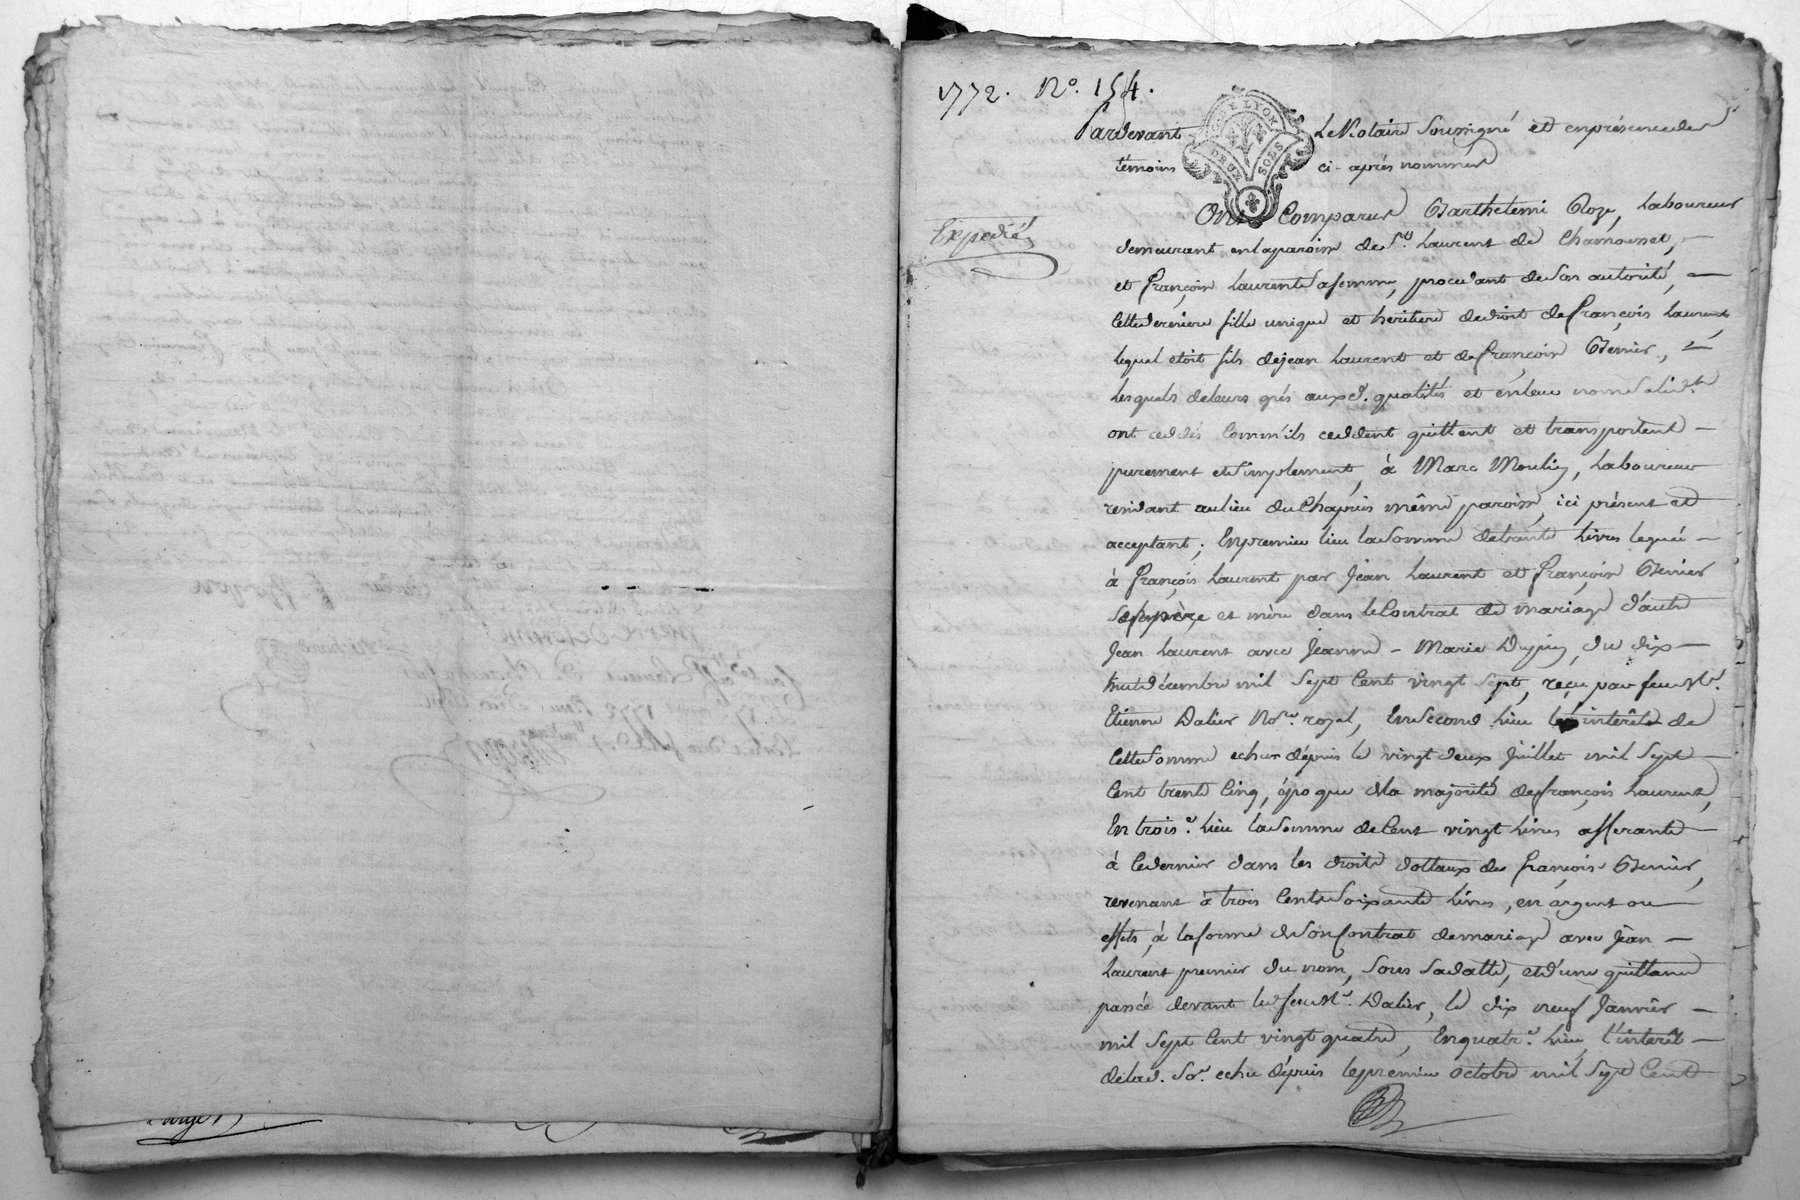 1772. No. 154.
Pardevant Le Notaire Soussigné et en présence des
GEN. DE LYON
DEUX SOLS
temoins ci-après nommés
Ont Comparus Barthelemi Roze, Laboureur
Expedié
demeurant en la paroisse de St. Laurent de Chamousset,
et françoise Laurent sa femme, procedant de son autorité,
Cette derniere fille unique et heritiere de droit de françois Laurent,
lequel etoit fils de jean Laurent et de françoise Benier,
Lesquels de leurs grés auxd. qualités et en leur nom solid.
ont ceddés Comm'ils ceddent quittent et transportent
purement et simplement, à Marc Moulin, Laboureur
residant au lieu du Chapuis même paroisse, ici présent et
acceptant; En premier lieu la Somme de trente Livres leguée
à françois Laurent par Jean Laurent et françoise Benier
Ses père et mère dans le Contrat de mariage d'autre
Jean Laurent avec Jeanne-Marie Dupin, du dix
huit décembre mil Sept Cent vingt Sept, reçu par feu Me.
Etienne Dalier Nore. royal, En Second Lieu les intérêts de
Cette Somme echus dépuis le vingt deux Juillet mil Sept
Cent trente Cinq, époque de la majorité de françois Laurent,
En trois.e Lieu la Somme de Cent vingt Livres afferante
à Ce dernier dans les droits dottaux de françoise Benier,
revenant à trois Cents Soixante Livres, en argent ou
effets, à la forme de Son Contrat de mariage avec Jean
Laurent premier du nom, Sous Sa datte, et d'une quittance
passée devant led. feu Me. Dalier, le dix neuf Janvier
mil Sept Cent vingt quatre, En quatr.e Lieu, l'intérêt
de lad. So.e echu dépuis le premier octobre mil Sept Cent